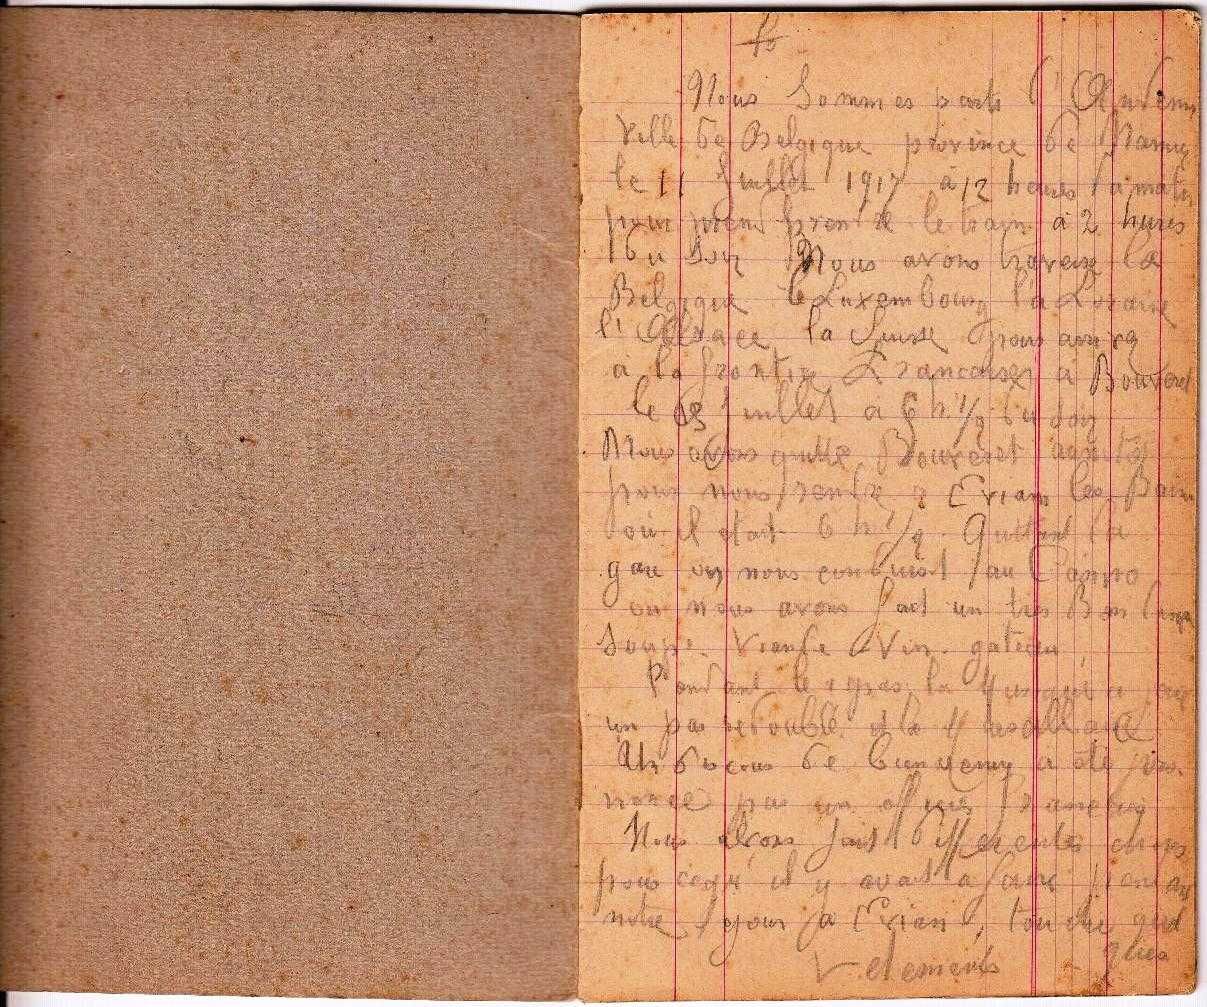 Nous Sommes parti d'Andenne
Ville de Belgique province de Namur
le 11 Juillet 1917 à 12 heures la matin
pour prend prendre le train à 2 hures
du Soir Nous avons traverse la
Belgique le Luxembourg la Loraine
l'Alsace la Suisse pour arriver
à la frontier Francaises à Bouveret
le Juillet à 6 h 1/2 du soir
Nous avons quitte Bouveret
pour nous rendre a Evian les Bains
où il etait 6 h 1/2. Quittant la
gare on nous conduisit au Casino
ou nous avons fait un tres Bon
soupe. Viande Vin. gateau,
Pendant le repas la Musique a joue
un pas redouble et la Marseillaise
Un discous de bienvenue a ete pro-
noncé par un officier Francais
Nous avons fait differentes choses
pour ce qu'il y avait a faire
notre sejour a Evian, touche quel
ques
Vetements